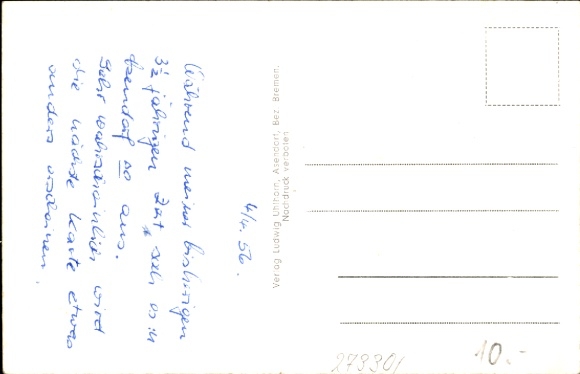 4/4. 56.
Während meiner bisherigen
3½ jährigen Zeit sah es in
Asendorf so aus.
Sehr wahrscheinlich wird
die nächste Karte etwas
anders erscheinen.
Verlag Ludwig Uhlhorn, Asendorf, Bez. Bremen.
Nachdruck verboten
273301
10.-